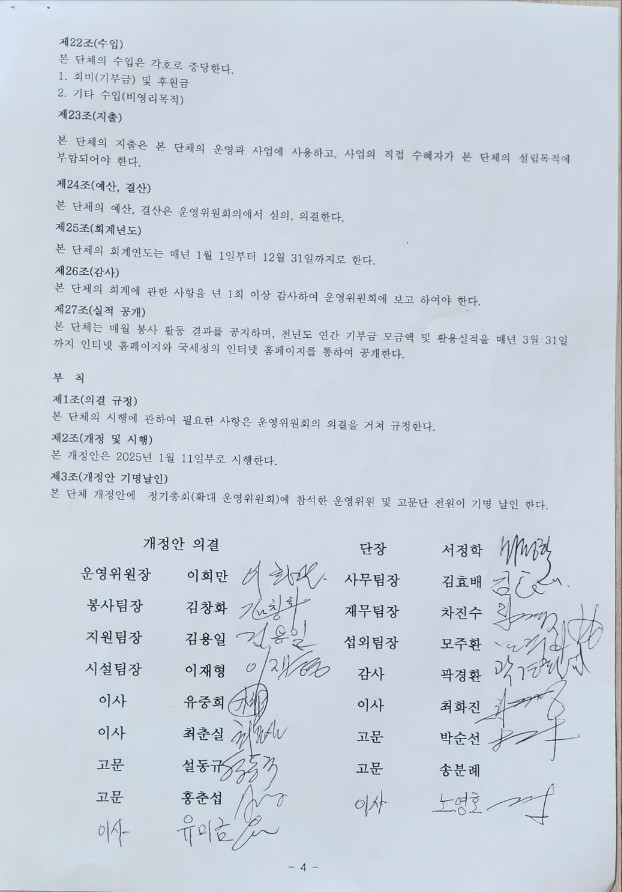 제22조(수입)
본 단체의 수입은 각호로 충당한다.
1. 회비(기부금) 및 후원금
2. 기타 수입(비영리목적)
제23조(지출)
본 단체의 지출은 본 단체의 운영과 사업에 사용하고, 사업의 직접 수혜자가 본 단체의 설립목적에
부합되어야 한다.
제24조(예산, 결산)
본 단체의 예산, 결산은 운영위원회의에서 심의, 의결한다.
제25조(회계년도)
본 단체의 회계연도는 매년 1월 1일부터 12월 31일까지로 한다.
제26조(감사)
본 단체의 회계에 관한 사항을 년 1회 이상 감사하여 운영위원회에 보고 하여야 한다.
제27조(실적 공개)
본 단체는 매월 봉사 활동 결과를 공지하며, 전년도 연간 기부금 모금액 및 활용실적을 매년 3월 31일
까지 인터넷 홈페이지와 국세청의 인터넷 홈페이지를 통하여 공개한다.
부 칙
제1조(의결 규정)
본 단체의 시행에 관하여 필요한 사항은 운영위원회의 의결을 거쳐 규정한다.
제2조(개정 및 시행)
본 개정안은 2025년 1월 11일부로 시행한다.
제3조(개정안 기명날인)
본 단체 개정안에 정기총회(확대 운영위원회)에 참석한 운영위원 및 고문단 전원이 기명 날인 한다.
개정안 의결 단장 서정학
운영위원장 이희만 사무팀장 김효배
봉사팀장 김창화 김창화 재무팀장 차진수
지원팀장 김용일 김용일 섭외팀장 모주환
시설팀장 이재형 이재형 감사 곽경환 곽경환
이사 유중희 이사 최화진
이사 최춘실 고문 박순선
고문 설동규 설동규 고문 송분례
고문 홍춘섭 이사 노영호
이사 유미금
- 4 -